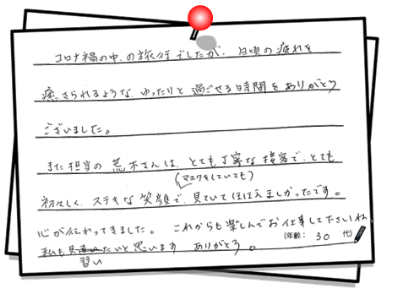 コロナ禍の中の旅行でしたが、日頃の疲れを
癒さられるような、ゆったりと過ごせる時間をありがとう
ございました。
また担当の荒木さんは、とても丁寧な接客で、とても
(マスクをしていても)
初々しく、ステキな笑顔で、見ていてほほえましかったです。
心が伝わってきました。これからも楽しんでお仕事して下さいね
(年齢: 30 代)
私も見習いたいと思います ありがとう。
習い